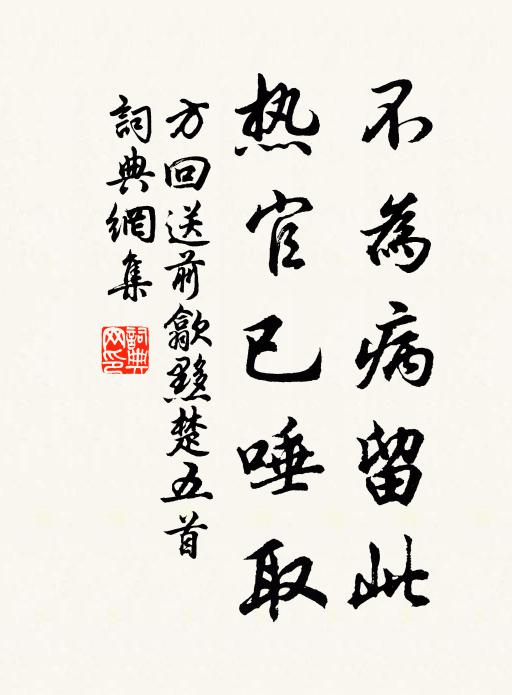 不為病留此
热官已唾取
方回送前歙黟楚五首
詞典網集
詞典网印